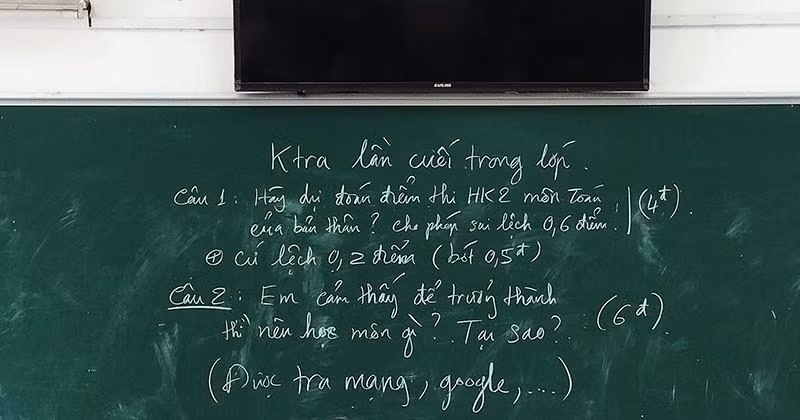 SAMSUNG
Ktra lần cuối trong lớp.
Câu 1: Hãy dự đoán điểm thi HK2 môn Toán
của bản thân? cho phép sai lệch 0,6 điểm. (4đ).
⊕ cứ lệch 0,2 điểm (bớt 0,5đ)
Câu 2: Em cảm thấy để trưởng thành
thì nên học môn gì? Tại sao? (6đ).
(Được tra mạng, google, ...)